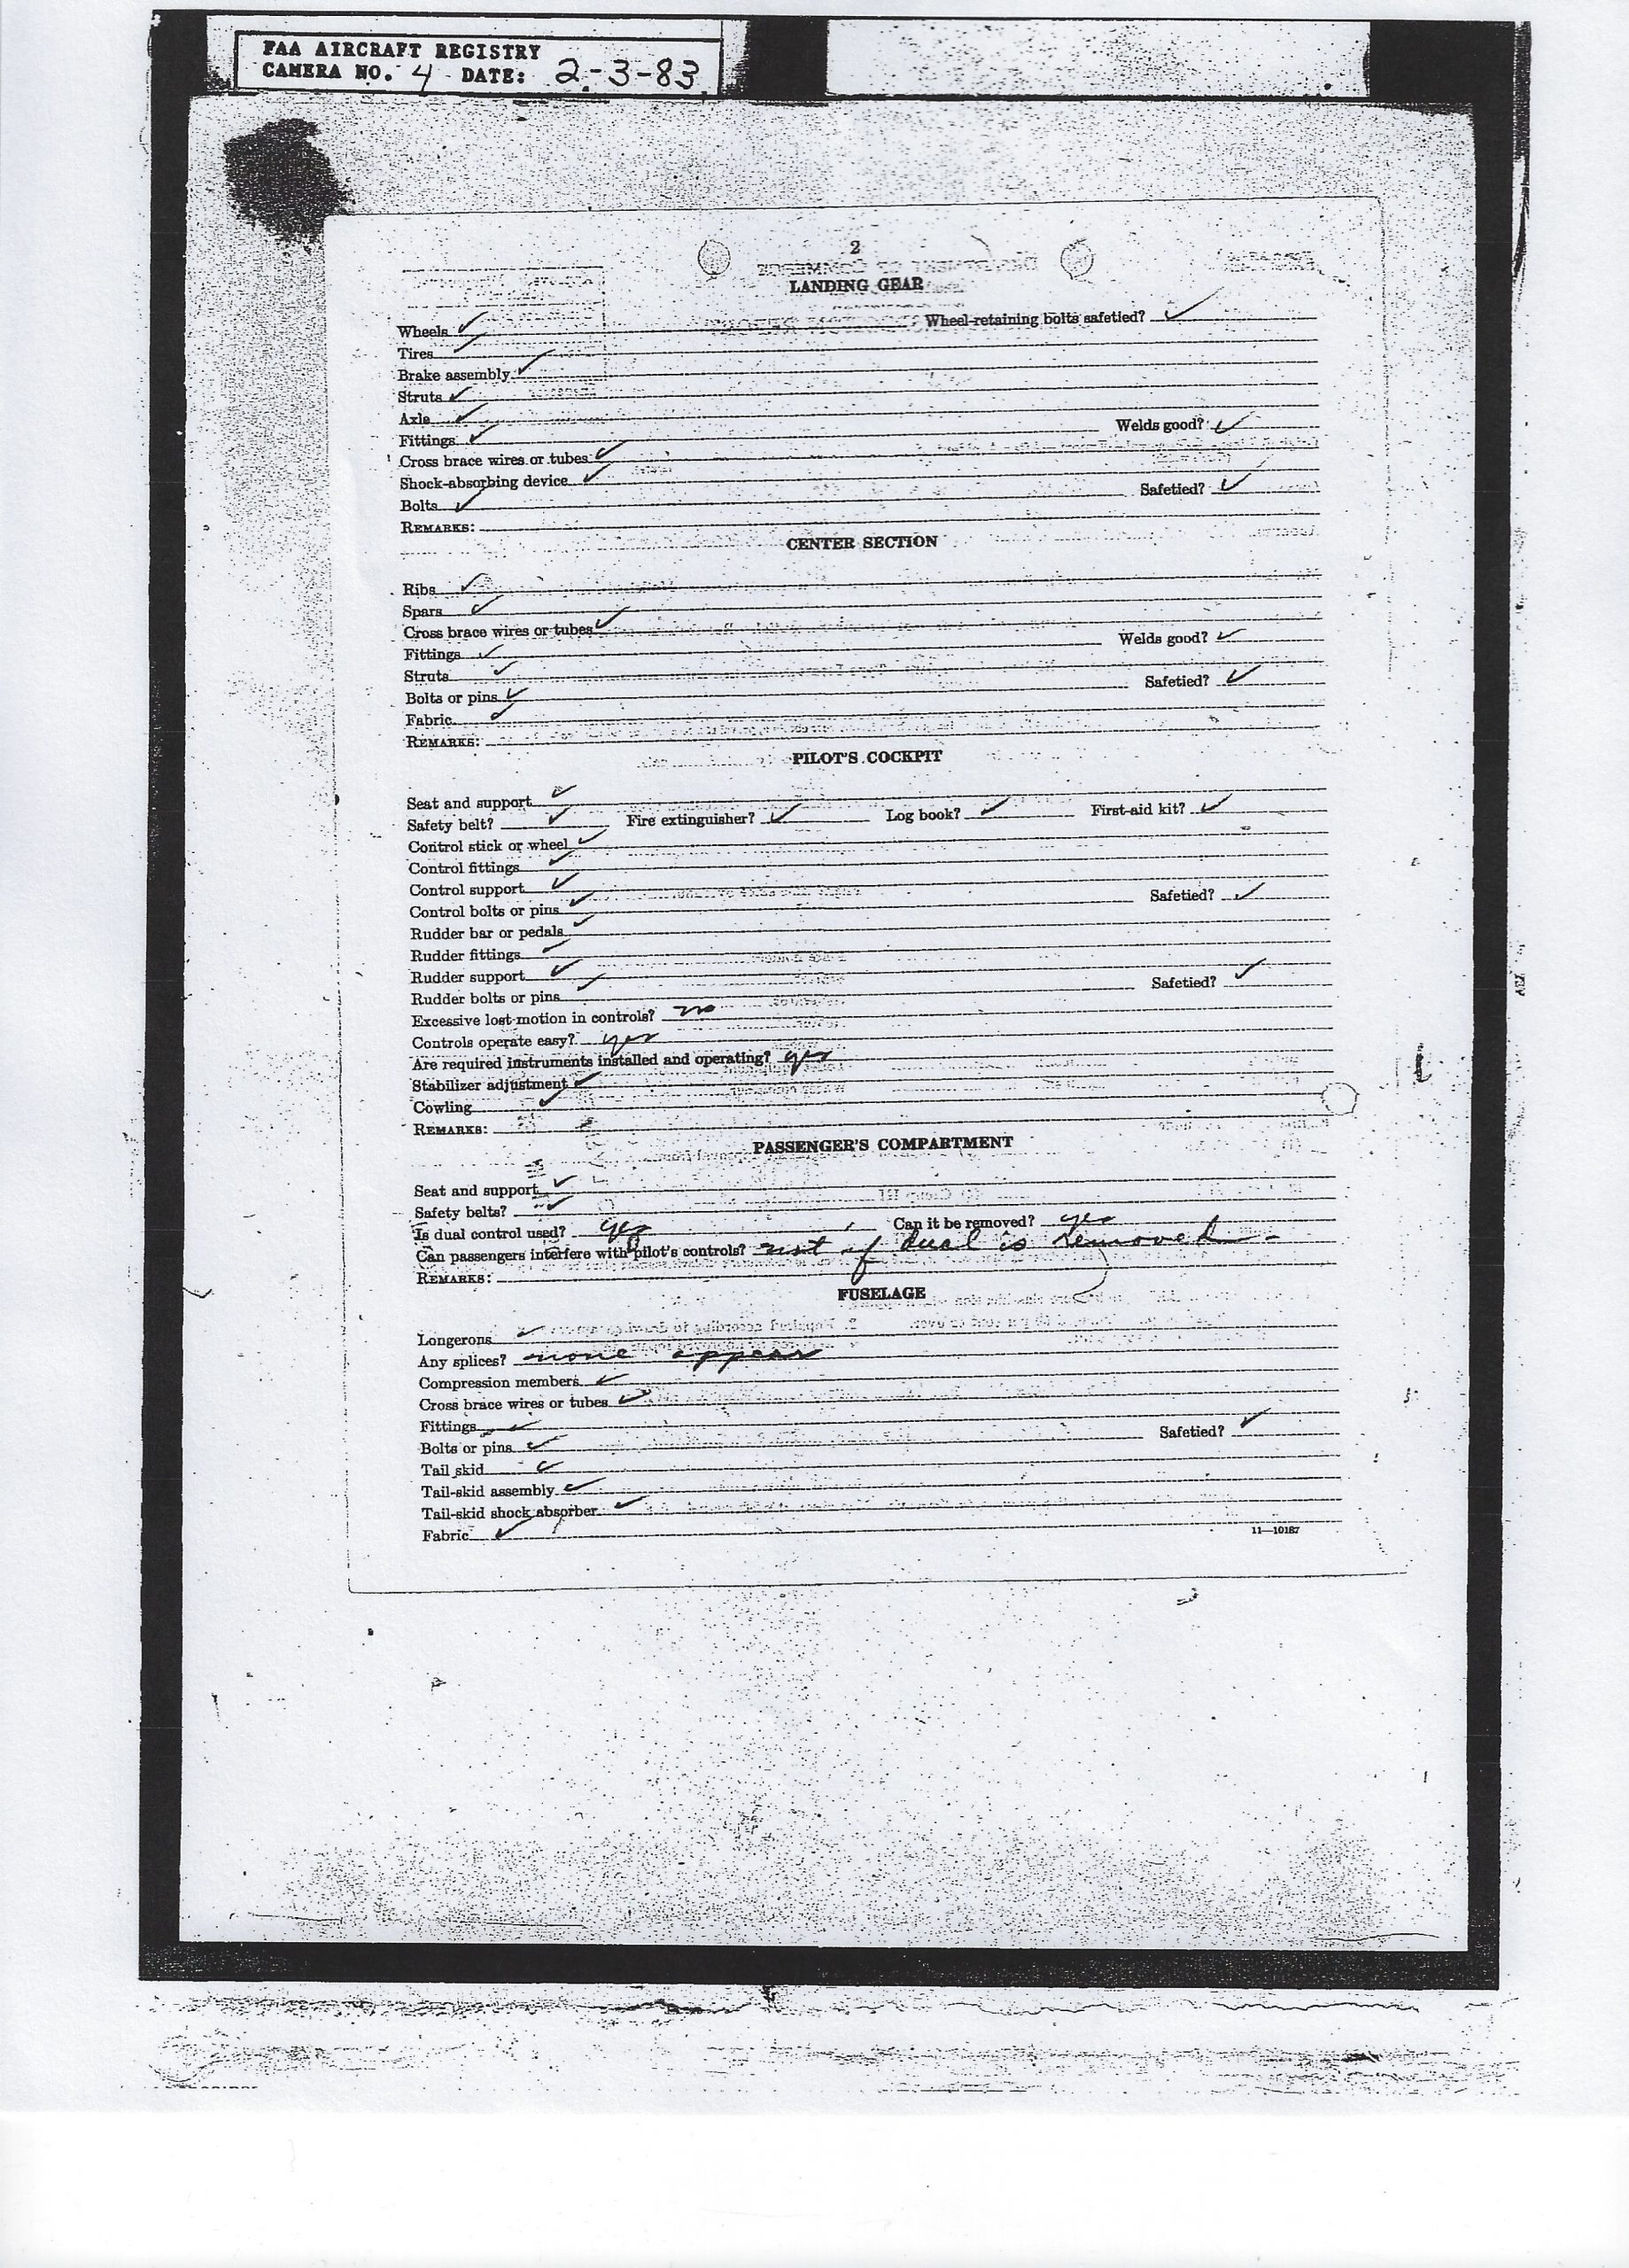 FAA AIRCRAFT REGISTRY
CAMERA NO. 4 DATE: 2-3-83
2
LANDING GEAR
Wheels ✓ Wheel-retaining bolts safetied? ✓
Tires ✓
Brake assembly ✓
Struts ✓
Axle ✓
Fittings ✓ Welds good? ✓
Cross brace wires or tubes ✓
Shock-absorbing device ✓
Bolts ✓ Safetied? ✓
REMARKS:
CENTER SECTION
Ribs ✓
Spars ✓
Cross brace wires or tubes ✓
Fittings ✓ Welds good? ✓
Struts ✓
Bolts or pins ✓ Safetied? ✓
Fabric ✓
REMARKS:
PILOT'S COCKPIT
Seat and support ✓
Safety belt? ✓ Fire extinguisher? ✓ Log book? ✓ First-aid kit? ✓
Control stick or wheel ✓
Control fittings ✓
Control support ✓
Control bolts or pins ✓ Safetied? ✓
Rudder bar or pedals ✓
Rudder fittings ✓
Rudder support ✓
Rudder bolts or pins ✓ Safetied? ✓
Excessive lost motion in controls? no
Controls operate easy? yes
Are required instruments installed and operating? yes
Stabilizer adjustment ✓
Cowling ✓
REMARKS:
PASSENGER'S COMPARTMENT
Seat and support ✓
Safety belts? ✓
Is dual control used? yes Can it be removed? yes
Can passengers interfere with pilot's controls? not if dual is removed -
REMARKS:
FUSELAGE
Longerons ✓
Any splices? none appear
Compression members ✓
Cross brace wires or tubes ✓
Fittings ✓
Bolts or pins ✓ Safetied? ✓
Tail skid ✓
Tail-skid assembly ✓
Tail-skid shock absorber ✓
Fabric ✓
11—10187